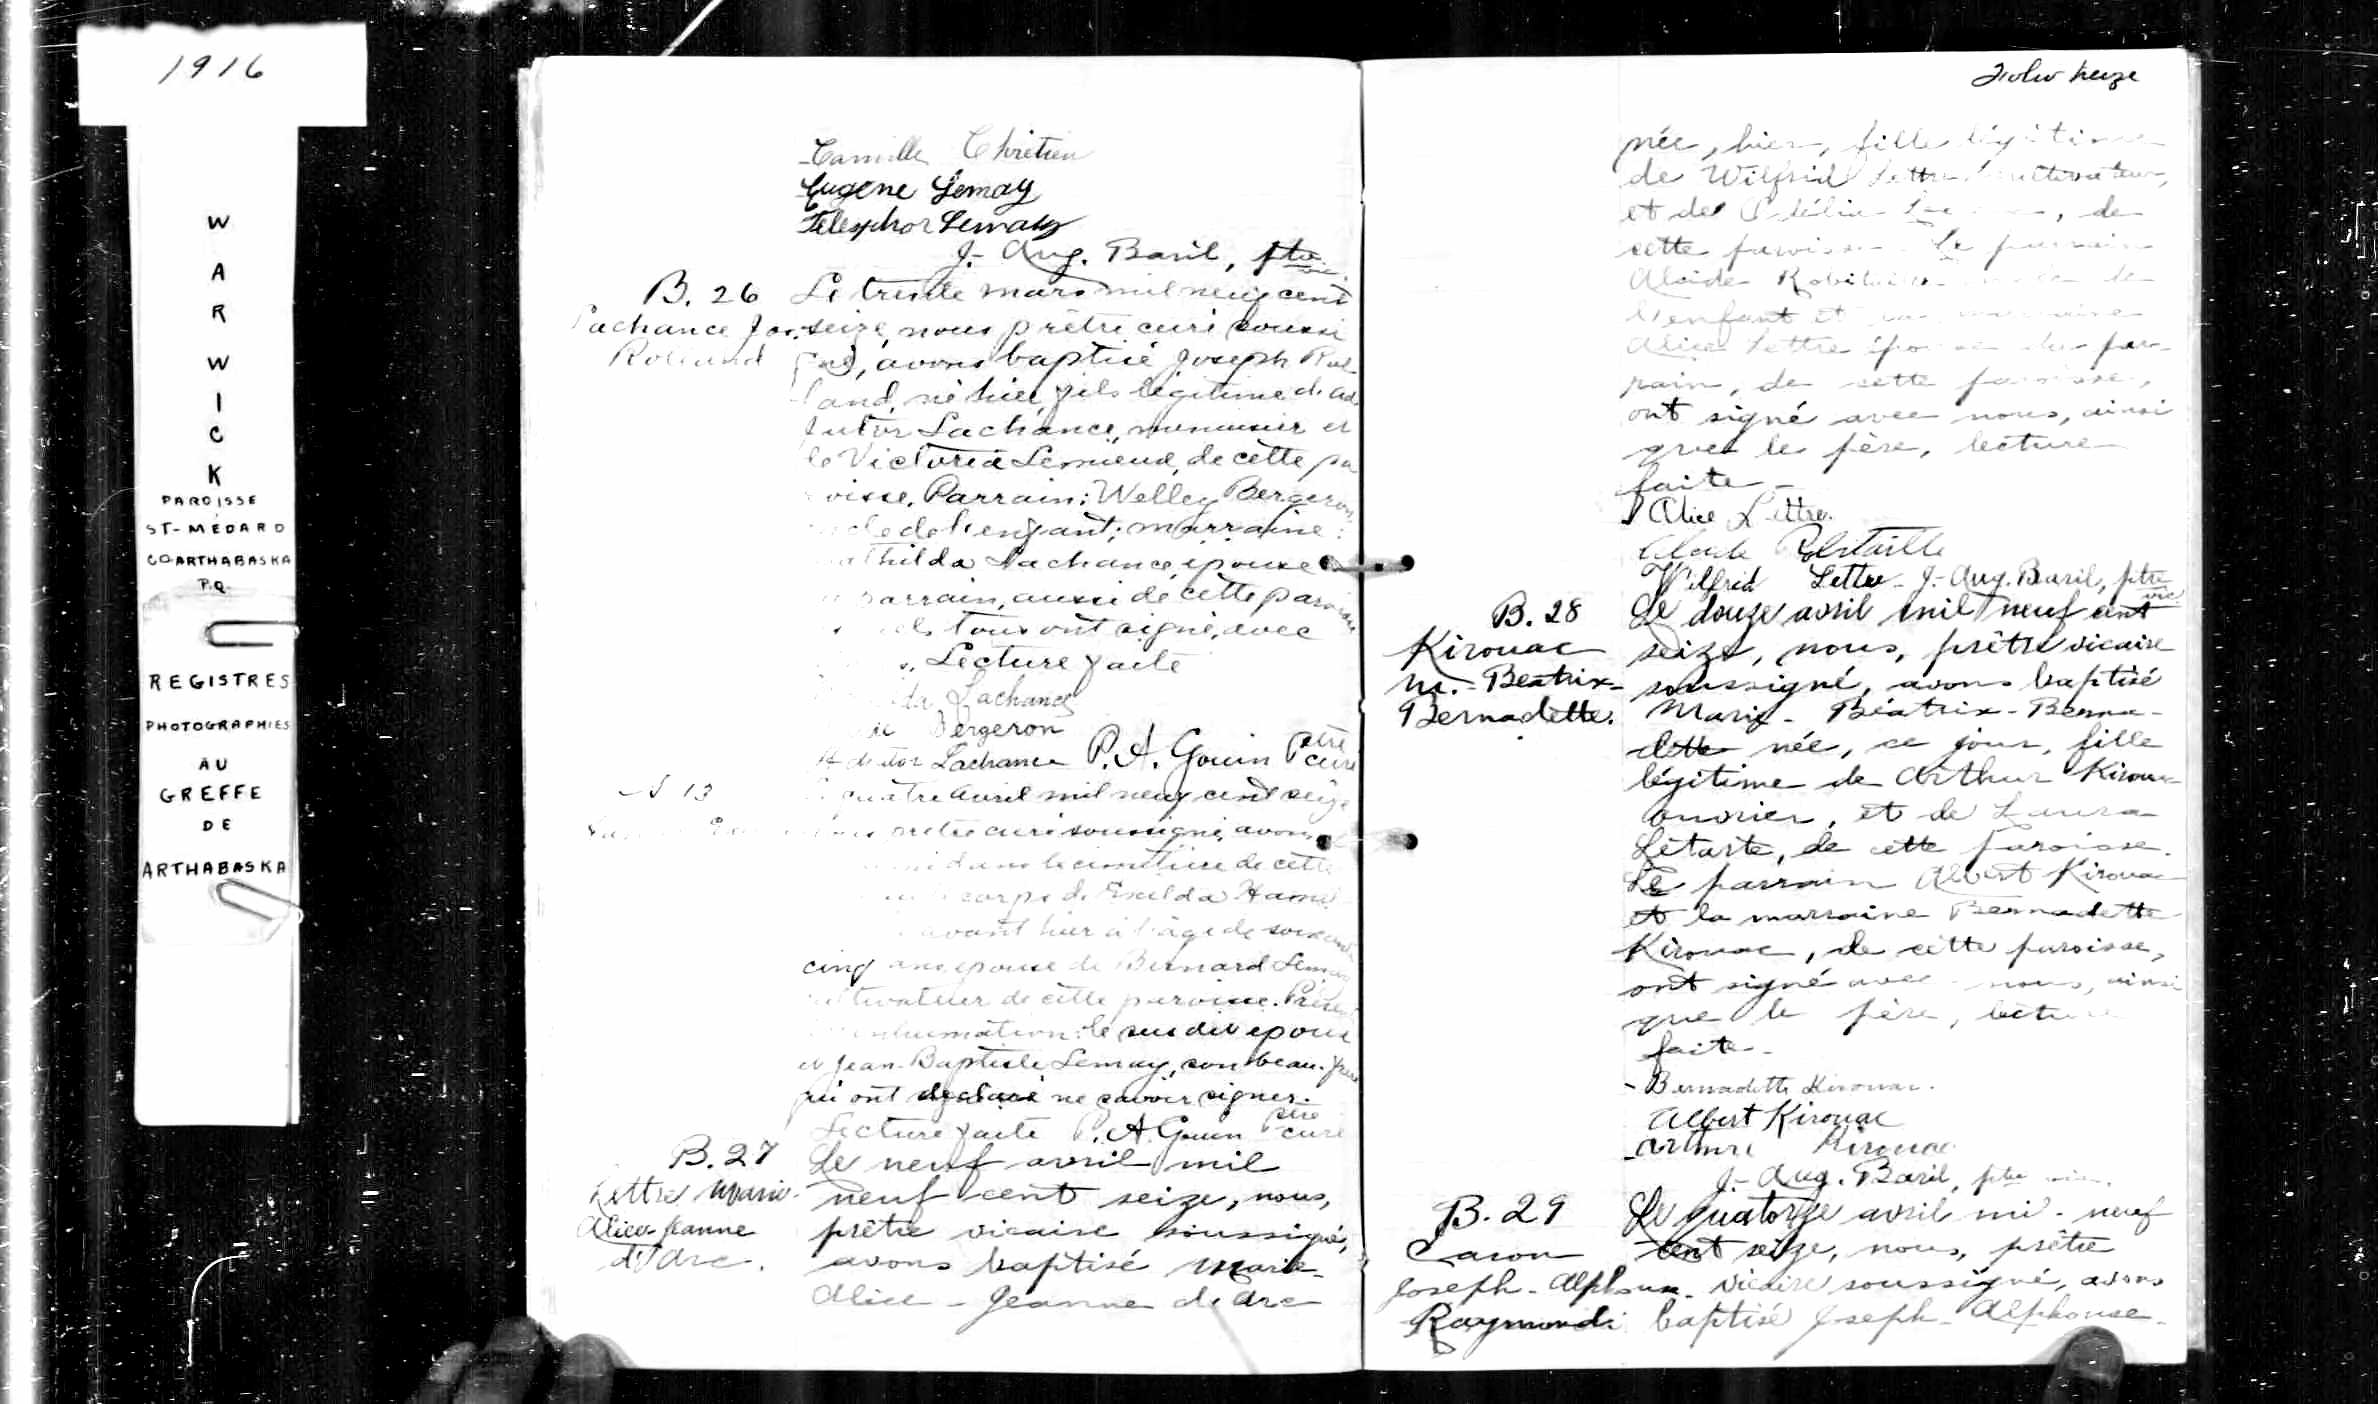 1916
WARWICK
PAROISSE
ST-MÉDARD
CO. ARTHABASKA
P.Q.
REGISTRES
PHOTOGRAPHIES
AU
GREFFE
DE
ARTHABASKA
Camille Chrétien
Eugène Lemay
Telesphor Lemay
J.-Aug. Baril, ptre vic.
B. 26
Lachance Jos.
Rolland
Le trente mars mil neuf cent
seize, nous prêtre curé soussi
gné, avons baptisé Joseph Rol
land, né hier, fils légitime de Ad
jutor Lachance, menuisier et
de Victoria Lemieux, de cette pa
roisse. Parrain: Welley Bergeron,
oncle de l'enfant; marraine:
Mathilda Lachance, épouse
parrain, aussi de cette paroisse
tous ont signé, avec
Lecture faite
Lachance
Bergeron
Adjutor Lachance P. A. Gouin Ptre curé
S 13
quatre Avril mil neuf cent seize
prêtre curé soussigné, avons
dans le cimetière de cette
corps de Exilda Hamel
avant hier à l'âge de soixante
cinq ans, épouse de Bernard Lemay
cultivateur de cette paroisse. Présents
inhumation: le susdit époux
et Jean-Baptiste Lemay, son beau-frère
qui ont déclaré ne savoir signer.
Lecture faite P. A. Gouin Ptre curé
B. 27
Lettre Marie-
Alice-Jeanne
d'Arc.
Le neuf avril mil
neuf cent seize, nous,
prêtre vicaire soussigné,
avons baptisé Marie-
Alice-Jeanne d'Arc
née, hier, fille légitime
de Wilfrid Lettre cultivateur,
et de, de
cette paroisse. Le parrain
Alcide
l'enfant et marraine
Alice Lettre épouse du par-
rain, de cette paroisse,
ont signé avec nous, ainsi
que le père, lecture
faite-
Alice Lettre.
Alcide Robitaille
Wilfrid Lettre- J.-Aug. Baril, ptre vic
B. 28
Kirouac
M.-Beatrix-
Bernadette.
Le douze avril mil neuf cent
seize, nous, prêtre vicaire
soussigné, avons baptisé
Marie-Béatrix-Berna-
dette née, ce jour, fille
légitime de Arthur Kirouac
ouvrier, et de Laura
Létarte, de cette paroisse.
Le parrain Albert Kirouac
et la marraine Bernadette
Kirouac, de cette paroisse,
ont signé avec nous, ainsi
que le père, lecture
faite-
Bernadette Kirouac.
Albert Kirouac
Arthur Kirouac
J.-Aug. Baril, ptre vic.
B. 29
Caron
Joseph-Alphonse-
Raymond:
Le quatorze avril mil neuf
cent seize, nous, prêtre
vicaire soussigné, avons
baptisé Joseph-Alphonse-